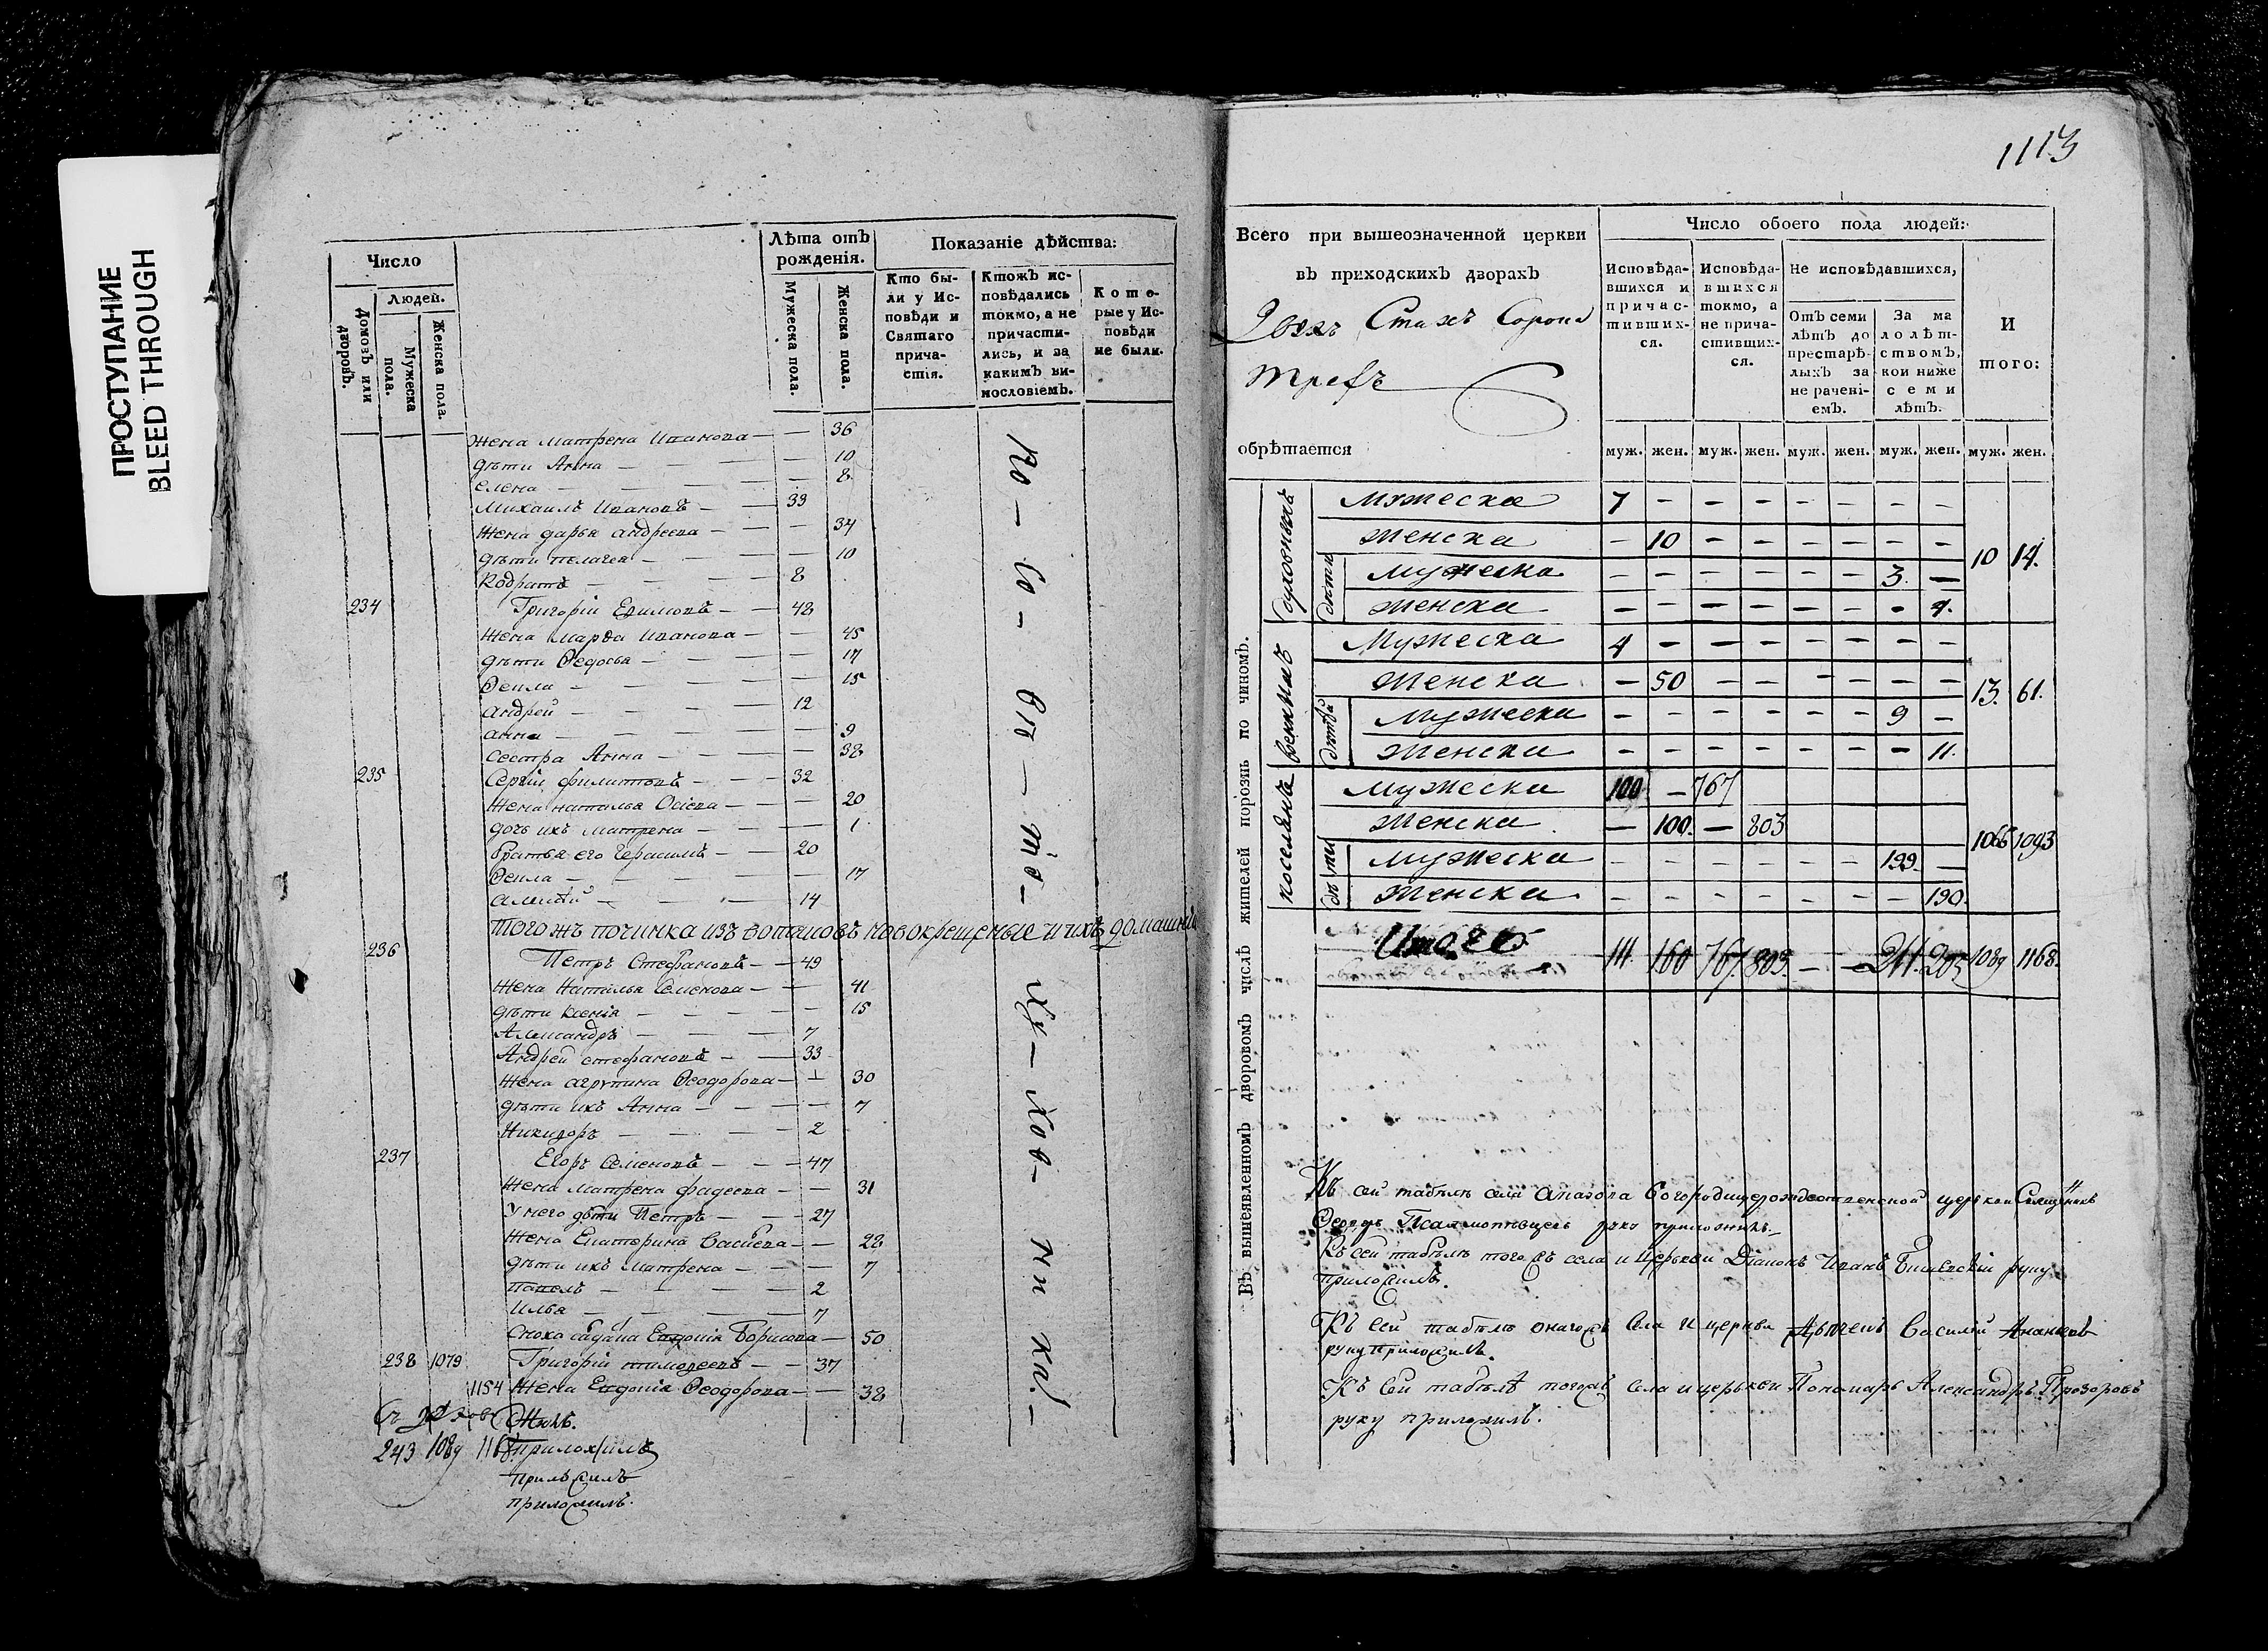 ПРОСТУПАНИЕ
BLEED THROUGH
Число
Людей.
Домовъ или дворовъ.
Мужеска пола.
Женска пола.
Лѣта отъ рожденія.
Мужеска пола.
Женска пола.
Показаніе дѣйства:
Кто были у Исповѣди и Святаго причастія.
Ктожъ исповѣдались токмо, а не причастились, и за какимъ винословіемъ.
Которые у Исповѣди не были.
Жена Матрена Иванова — — 36
дѣти Анна — — — 10
Елена — — — 8
Михаилъ Ивановъ — — 33
Жена дарья андреева — — 34
дѣти пелагея — — 10
Кодратъ — — — 8
234 Григорій Ефимовъ — — 48
Жена марфа Иванова — — 45
дѣти Ѳедосья — — — 17
Ѳекла — — — 15
Андрей — — — 12
анна — — — 9
сестра Анна — — — 38
235 Сергій филиповъ — — 32
Жена наталья — — 20
дочь ихъ матрена — — 1
братья его Герасимъ — — 20
Ѳекла — — — 17
14
того жъ починка изъ вотяковъ новокрещеные и ихъ домашніе
236 Петръ Стефановъ — — 49
Жена Наталья Семенова — — 41
дѣти ксенія — — — 15
Александръ — — — 7
Андрей стефановъ — — 33
Жена агрипина Ѳеодорова — — 30
дѣти ихъ Анна — — — 7
Никифоръ — — — 2
237 Егоръ Семеновъ — — 47
Жена матрена фадеева — — 31
У него дѣти Петръ — — 27
Жена Екатерина — — 28
дѣти ихъ матрена — — 7
павелъ — — — 2
Илья — — — 7
Евдокія Борисова — 50
238 1079 Григорій тимофеевъ — — 37
1154 Жена Евдокія Ѳеодорова — — 38
243 1089 1168 приложилъ
приложилъ
приложилъ.
1113
Всего при вышеозначенной церкви
въ приходскихъ дворахъ
Двухъ Стахъ Сорока
трехъ
обрѣтается
Число обоего пола людей:
Исповѣдавшихся и причастившихся.
Исповѣдавшихся токмо, а не причастившихся.
Не исповѣдавшихся,
Отъ семи лѣтъ до престарѣлыхъ за нерачені-емъ.
За малолѣтствомъ, кои ниже семи лѣтъ.
И того:
муж. жен. муж. жен. муж. жен. муж. жен. муж. жен.
Въ вышеявленномъ дворовомъ числѣ жителей порознь по чиномъ.
духовныхъ
Мужеска 7 — — — — — — —
Женска — 10 — — — — — — 10 14.
дѣти
Мужеска — — — — — — 3. —
Женска — — — — — — — 4.
военныхъ
Мужеска 4 — — — — — — —
Женска — 50 — — — — — — 13. 61.
дѣтей
Мужеска — — — — — — 9 —
Женска — — — — — — — 11.
поселянъ
Мужеска 100 — 767
Женска — 100. — 803 1066 1093
дѣти
Мужеска — — — — — — 199. —
Женска — — — — — — — 190.
Итого 111. 160 767. 803. — — 211. 205 1089 1168.
Къ сей табелѣ села Богородицерождественской церкви Священникъ
Ѳеодоръ руку приложилъ.
Къ сей табелѣ того жъ села и Церькви Діаконъ Иванъ руку
приложилъ.
Къ сей табелѣ онагожъ села и церкви Дьячекъ Василій Ананьевъ
руку приложилъ.
Къ сей табелѣ тогожъ села и церькви Пономарь Александръ Прозоровъ
руку приложилъ.